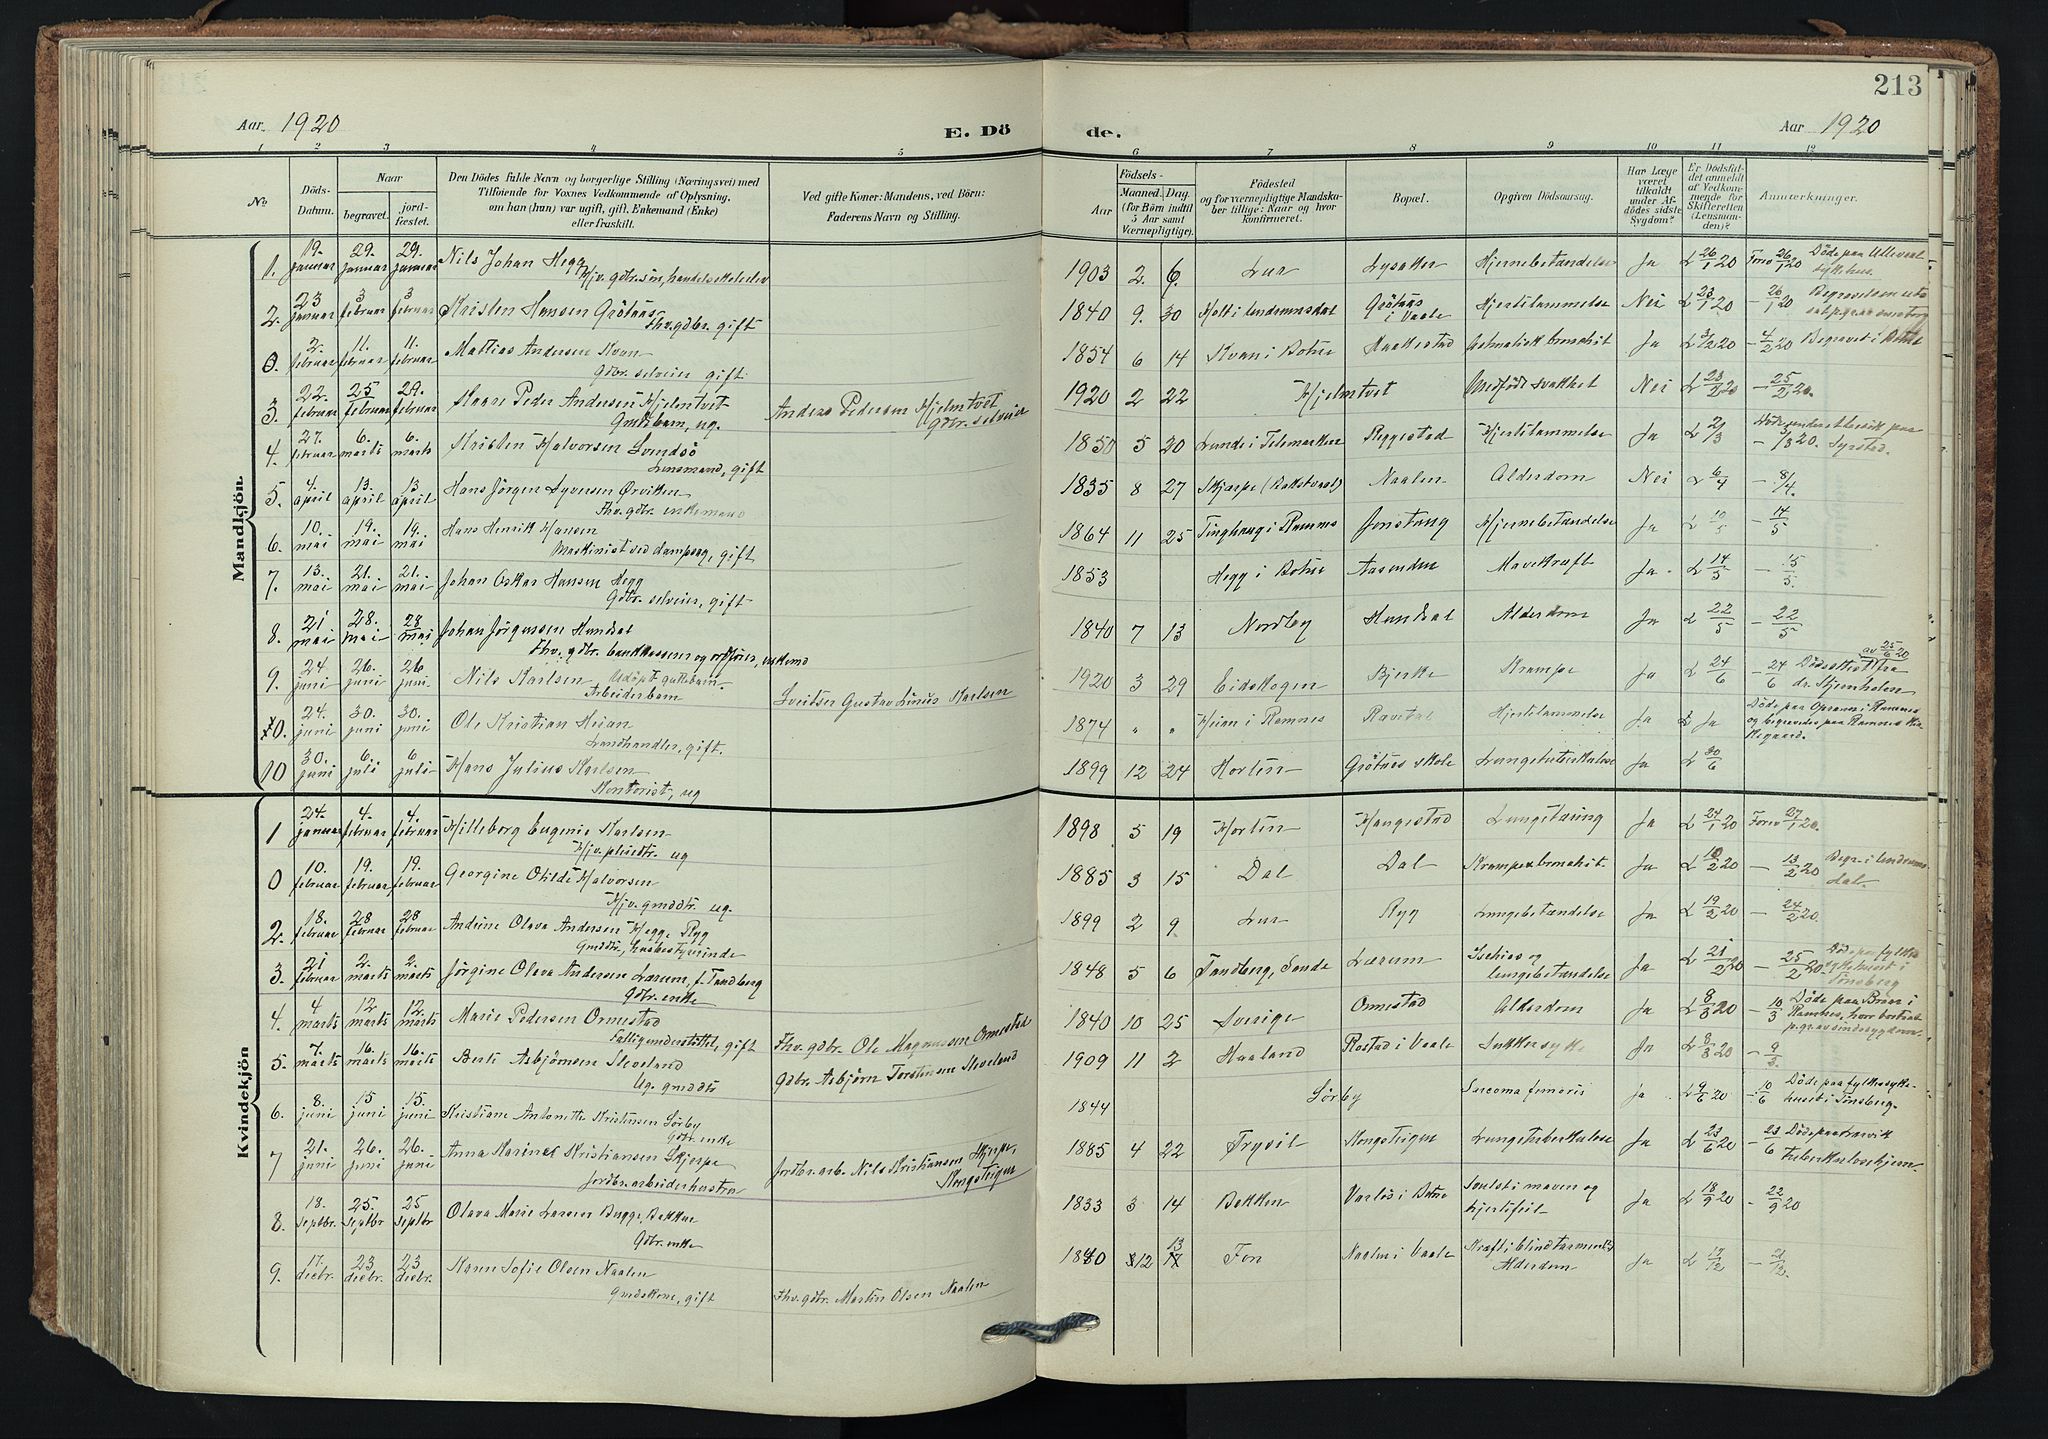 213
Aar. 1920
E. Dö
de.
Aar 1920
1 2 3 4 5 6 7 8 9 10 11 12
No
Döds-Datum.
Naar
begravet. jord-fæstet.
Den Dödes fulde Navn og borgerlige Stilling (Næringsvei) med
Tilföiende for Voxnes Vedkommende af Oplysning,
om han (hun) var ugift, gift, Enkemand (Enke)
eller fraskilt.
Ved gifte Koner: Mandens, ved Börn:
Faderens Navn og Stilling.
Födsels-
Aar Maaned. Dag.
(for Börn indtil 5 Aar samt Værnepligtige).
Födested
og for værnepligtige Mandska-
ber tillige: Naar og hvor
konfirmeret.
Bopæl.
Opgiven Dödsaarsag.
Har Læge været tilkaldt under Af-dödes sidste Sygdom?
Er Dödsfal-det anmeldt af Vedkom-mende for Skifteretten (Lensman-den)?
Anmerkninger.
Mandkjön.
1. 19. januar 29. januar 29. januar Nils Johan Hegg 1903 2 6. Lur Lysaker Hjernebetændelse Ja L 26/1 20 Fon 26/1 20 Döde paa Ullevaal
Hjv. gdbr.sön, handelsskoleelev sykehus.
2. 23 januar 3 februar 3 februar Kristen Hansen Grötnæs 1840 9. 30 Grötnæs i Vaale Hjertelammelse Nei L 23/1 20 - 26/1 20 Begravelsen
Fhv. gdbr. gift
0. 2. februar 11. februar 11. februar Mattias Andersen Kvan 1854 6 14 Kvan i Botne Haakestad Astmatisk bronchit Ja L 3/2 20 - 4/2 20 Begravet i Botne
Gdbr. selveier gift
3. 22. februar 25 februar 29. februar Haare Peder Andersen Hjelmtvet Anders Pedersen Hjelmtvet 1920 2 22 Hjelmtvet Medfödt svakhet Nei L 23/2 20 - 25/2 20.
Gmdsbarn, ug. gdbr. selveier
4. 27. februar 6. marts 6. marts Kristen Halvorsen Svendsö 1850 5 20 Lunde i Telemarken Reggestad Hjertelammelse Ja L 2/3 - 3/3 20.
Lensmand, gift
5. 4. april 13. april 13 april Hans Jörgen Syvensen Ørviken 1835 8 27 Skjærpe Naalen Alderdom Nei L 6/4 - 8/4.
Fhv. gdbr. enkemand
6. 10. mai 19. mai 19. mai Hans Henrik Hansen 1864 11 25 Tinghaug i Ramnes Jonstang Hjernebetændelse Ja L 10/5 - 14/5
Maskinist ved dampsag, gift
7. 13. mai 21. mai 21. mai Johan Oskar Hansen Hegg 1853 Hegg i Botne Aasenden Mavekræft Ja. L 14/5 - 15/5.
Gdbr. selveier, gift
8. 21 mai 28. mai 28 mai Johan Jörgensen Hundsal 1840 7 13 Nordby Hundsal Alderdom Ja L 22/5 - 22/5
Fhv. gdbr. bankkasserer og ordförer, enkemd
9. 24 juni 26. juni 26 juni Nils Karlsen Udöpt guttebarn. Sveitser Gustav Linus Karlsen 1920 3 29 Eidskogen Bjerke Krampe Ja L 24/6 - 24/6 Dödsattest fra
Arbeiderbarn av 25/6 20 dr. Stjernholm
0. 24. juni 30. juni 30. juni Ole Kristian Heian 1874 " " Heian i Ramnes Ravdal Hjertelammelse Ja L Ja Döde paa Opsann i Ramnes
Landhandler, gift. og begravedes paa Ramnes kirkegaard.
10 30. juni 6. juli 6 juli Hans Julius Karlsen 1899 12 24 Horten Grötnes skole Lungetuberkulose Ja L 30/6
Kontorist, ug
Kvindekjön
1 24. januar 4. februar 4. februar Hilleborg Eugenie Karlsen 1898 5 19 Horten Haugestad Lungetæring Ja L 24/1 20 Fon 27/1 20.
Hjv. pleiedtr. ug
0 10. februar 19. februar 19. februar Georgine Otilde Halvorsen 1885 3 15 Dal Dal Krampe bronchit. Ja L 10/2 20 - 13/2 20 Begr. i
Hjv. gmddtr. ug.
2. 18. februar 28 februar 28 februar Andrine Olava Andersen Hegge Ryg 1899 2 9. Lur Ryg Lungebetændelse Ja L 19/2 20 - 24/2 20.
Gmddtr, husbestyrerinde
3. 21 februar 2. marts 2. marts Jörgine Olava Andersen Lærum, f. Tandberg 1848 5 6 Tandberg, Sande Lærum Ischias og lungebetændelse Ja L 21/2 20 - 25/2 20 Döde paa fylkes
Gdbr. enke sykehuset i Tönsberg
4. 4 marts 12 marts 12. marts Marie Pedersen Ormestad Fhv. gdbr. Ole Magnussen Ormestad 1840 10 25 Sverige Ormestad Alderdom Ja L 8/3 20 - 10/3 Döde paa Brær i
Fattigunderstöttet, gift Ramnes, hvor bortsat p.gr.av sindssygdom
5. 7. marts 16. marts 16. marts Berte Asbjörnsen Sleveland Gdbr. Asbjörn Torstensen Sleveland 1909 11 2 Haaland Rostad i Vaale Sukkersyke Ja L 8/3 20 - 9/3.
Ug. gmddtr
6. 8. juni 15 juni 15. juni Kristiane Antonette Kristensen Sörby 1844 Sörby Sarcoma femoris Ja L 9/6 20 - 10/6 Döde paa fylkessyke-
Gdbr. enke huset i Tönsberg.
7 21. juni 26. juni 26. juni Anna Karine Kristiansen Skjerpe Jordbr.arb. Nils Kristiansen Skjerpe, 1885 4 22 Trysil Kongsteigen Lungetuberkulose Ja L 23/6 20 - 23/6 Döde paa Larvik
Jordbr.arbeiderhustru Kongsteigen Tuberkulosehjem
8. 18. septbr. 25. septbr 25 septbr Olava Marie Larsen Bugge, Bakken 1833 3 14 Bakken i Botne Svulst i maven og hjertefeil Ja L 18/9 20 - 22/9 20
Gdbr. enke
9. 17. decbr. 23 decbr. 23 decbr. Karen Sofie Olsen Naalen Fhv. gdbr. Martin Olsen Naalen 1840 12 13 Fon Naalen i Vaale Kræft i blindtarmen Alderdom Ja L 17/12 - 21/12
Gmdskone, gift